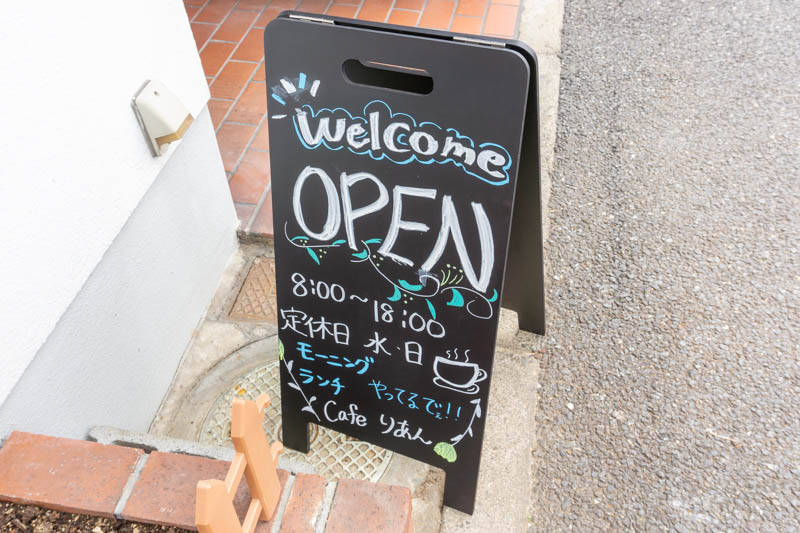 Welcome
OPEN
8:00〜18:00
定休日 水・日
モーニング
ランチ やってるでぇ!!
Cafe りあん